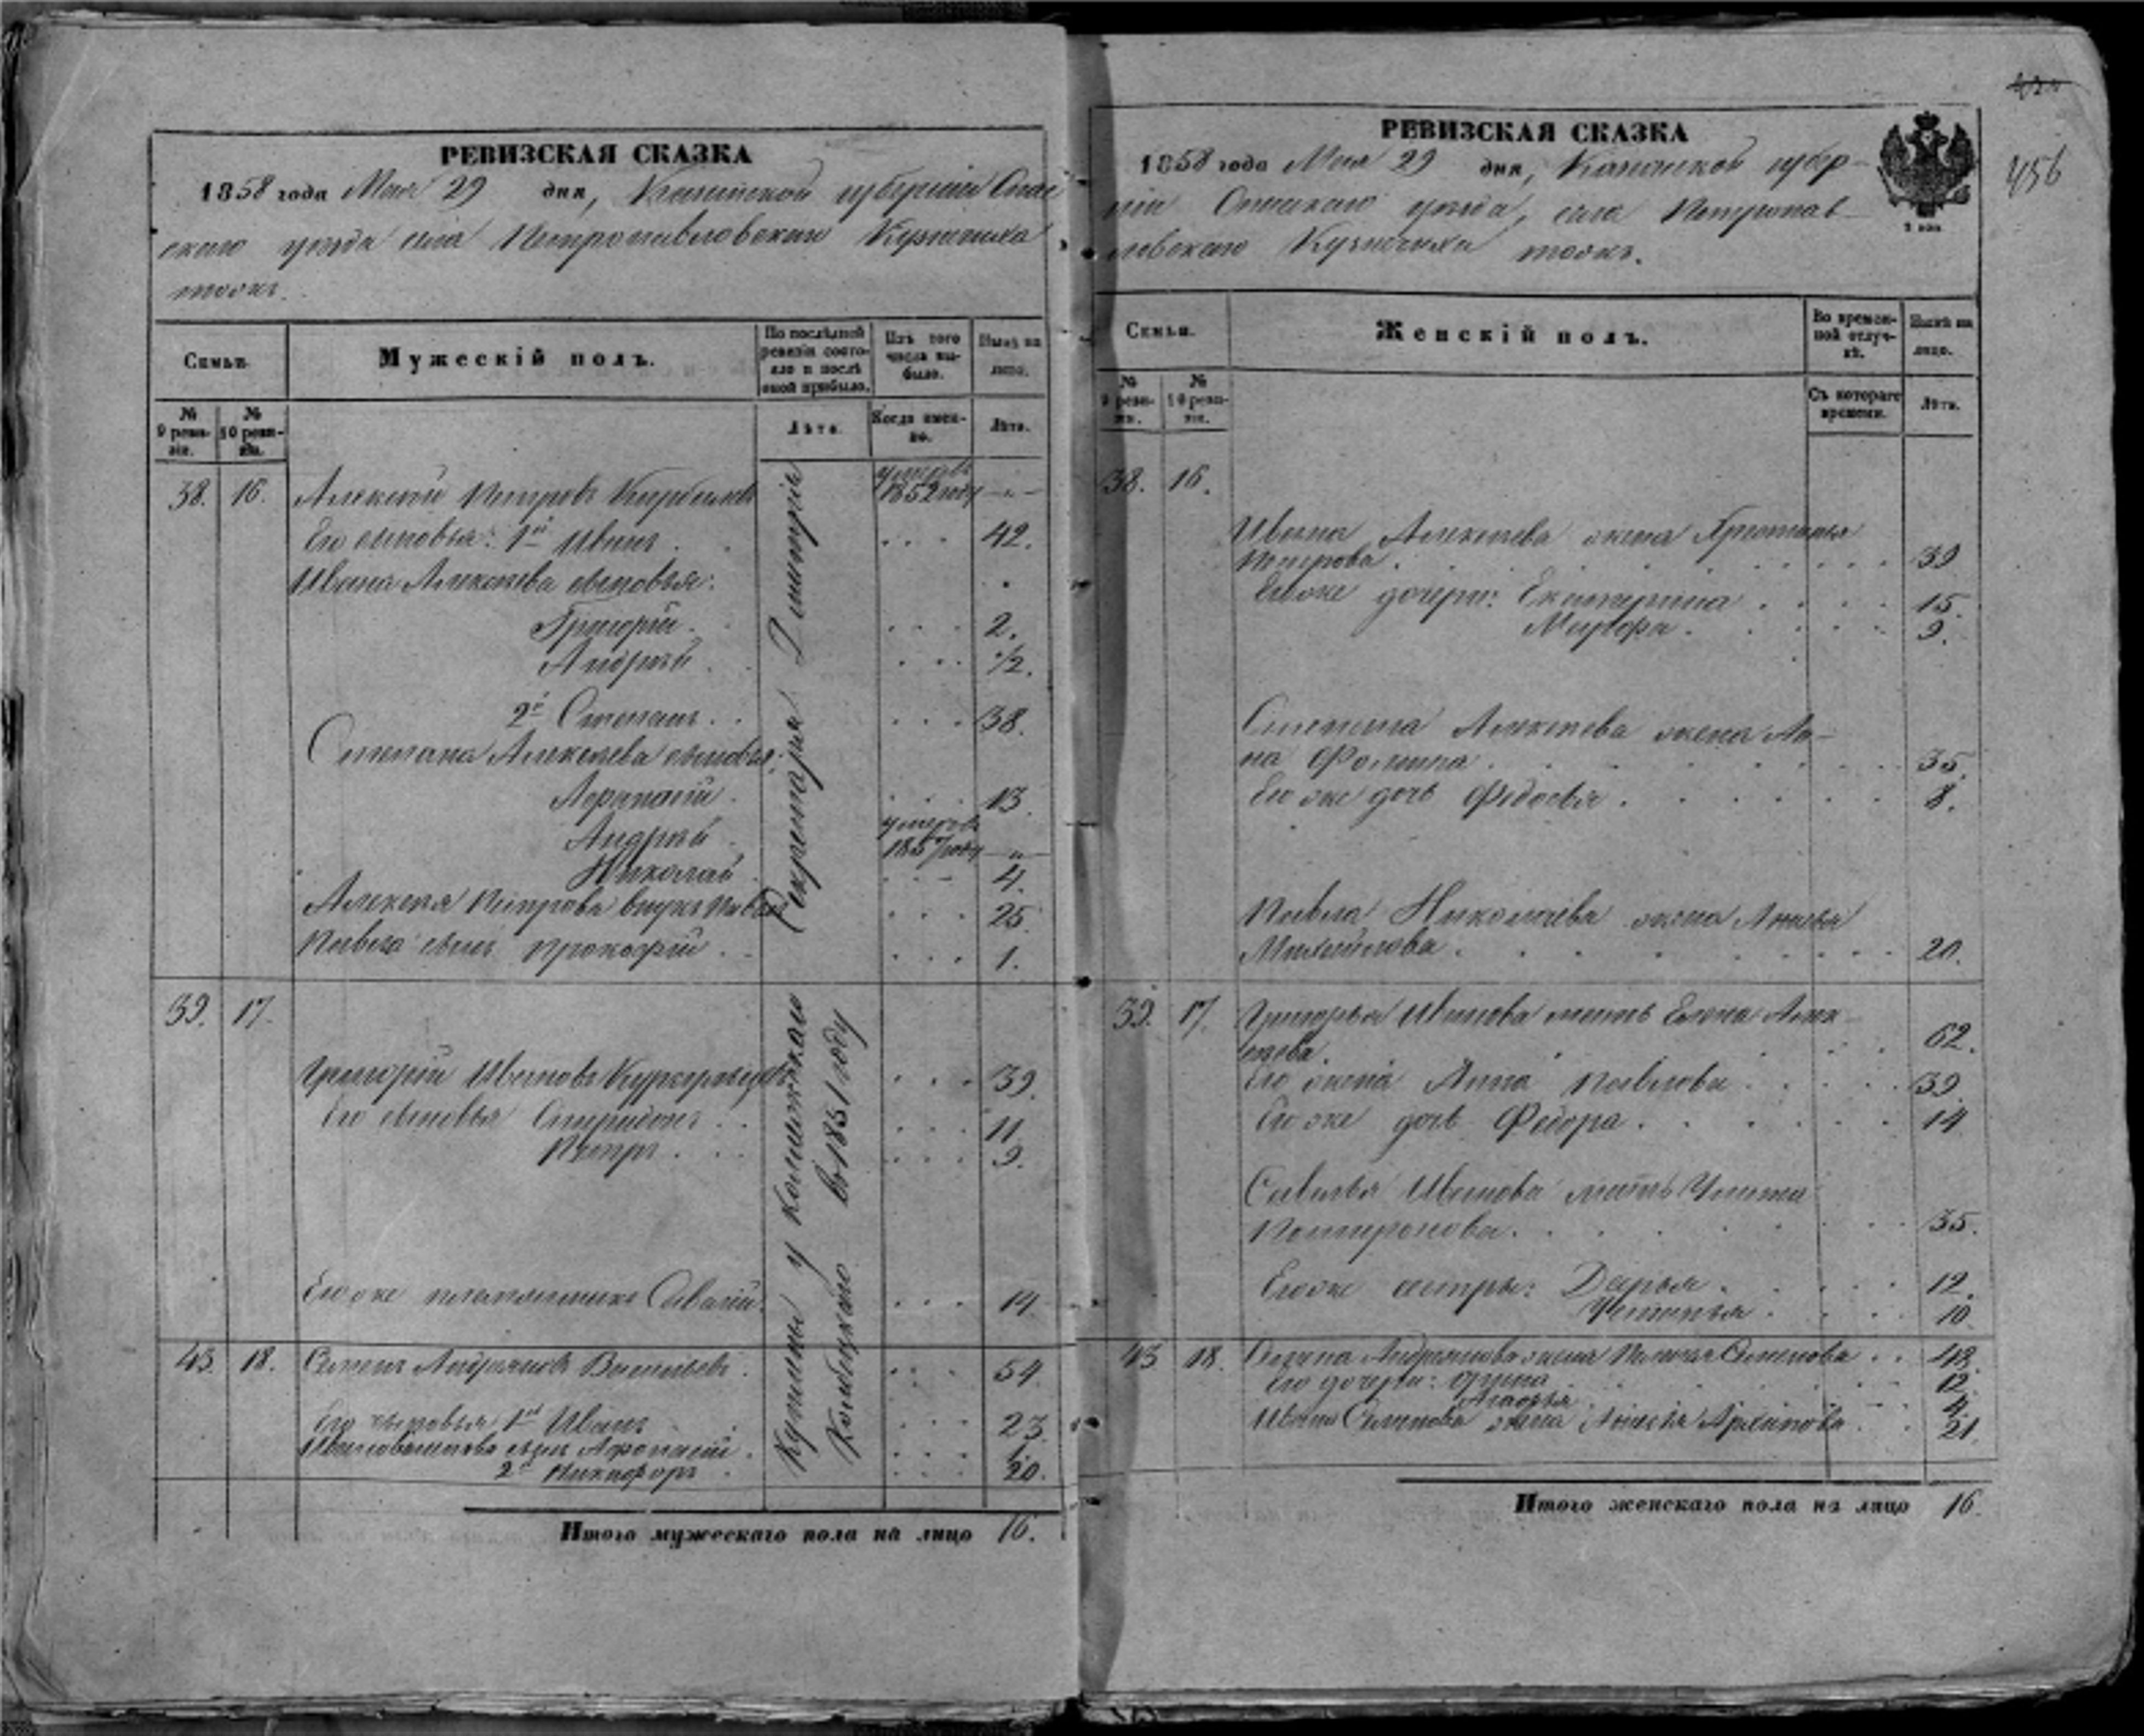 РЕВИЗСКАЯ СКАЗКА
1858 года Мая 29 дня, Казанской губерніи Спас
скаго уѣзда села Петропавловскаго Кузнечиха
тожъ.
Семьи.
Мужескій полъ.
По послѣдней ревизіи состояло и послѣ оной прибыло.
Изъ того числа выбыло.
Нынѣ на лицо.
№ 9 ревизіи.
№ 10 ревизіи.
Лѣта.
Когда именно.
Лѣта.
38. 16. Алексѣй Петровъ умеръ 1852 году —„—
Его сыновья: 1й Иванъ . . . . 42.
Ивана Алексѣева сыновья:
Григорій . . . . 2.
Андрей . . . . 1/2.
2й Степанъ . . . . 38.
Степана Алексѣева сыновья:
Афанасій . . . . 13.
Андрей умеръ 1857 году —„—
Николай . . . 4.
Алексѣя Петрова внукъ Павелъ . . . 25.
Павла сынъ Прокофій . . . . 1.
39. 17.
Григорій Ивановъ . . . 39.
Его сыновья Спиридонъ . . . 11
Петръ . . . . 9.
Его же племянникъ Савелій . . . 14.
43. 18. Семенъ Андреяновъ Васильевъ . . . . 54.
Его сыновья 1й Иванъ . . . 23.
сынъ Афонасій . . . 1.
2й Никифоръ . . . . 20.
Куплены у Коллежскаго Секретаря Дмитрія
въ 1851 году
Итого мужескаго пола на лицо 16.
456
РЕВИЗСКАЯ СКАЗКА
1858 года Мая 29 дня, Казанской губер-
ніи Спаскаго уѣзда, села Петропав-
ловскаго Кузнечиха тожъ.
Семьи.
Женскій полъ.
Во временной отлучкѣ.
Нынѣ на лицо.
№ 9 ревизіи.
№ 10 ревизіи.
Съ котораго времени.
Лѣта.
38. 16.
Ивана Алексѣева жена
Петрова . . . . 39
Его же дочери: Екатерина . . . . 15.
. . . . 9.
Степана Алексѣева жена Ан-
на Фомина . . . . 35.
Его же дочь Федосья . . . . 8.
Павла Николаева жена
Михайлова . . . . 20.
39. 17. Григорья Иванова мать Елена Алек-
сѣева . . . . 62.
Его жена Анна Павлова . . . . 39.
Его же дочь Федора . . . . 14
Савелья Иванова мать
. . . . 35.
Его же сестры: Дарья . . . . 12.
Устинья . . . . 10.
43 18. Семена Андреянова жена Семенова . . 48.
Его дочери: . . . . 12.
. . . . 4.
Ивана Семенова жена Архипова . . 21.
Итого женскаго пола на лицо 16.